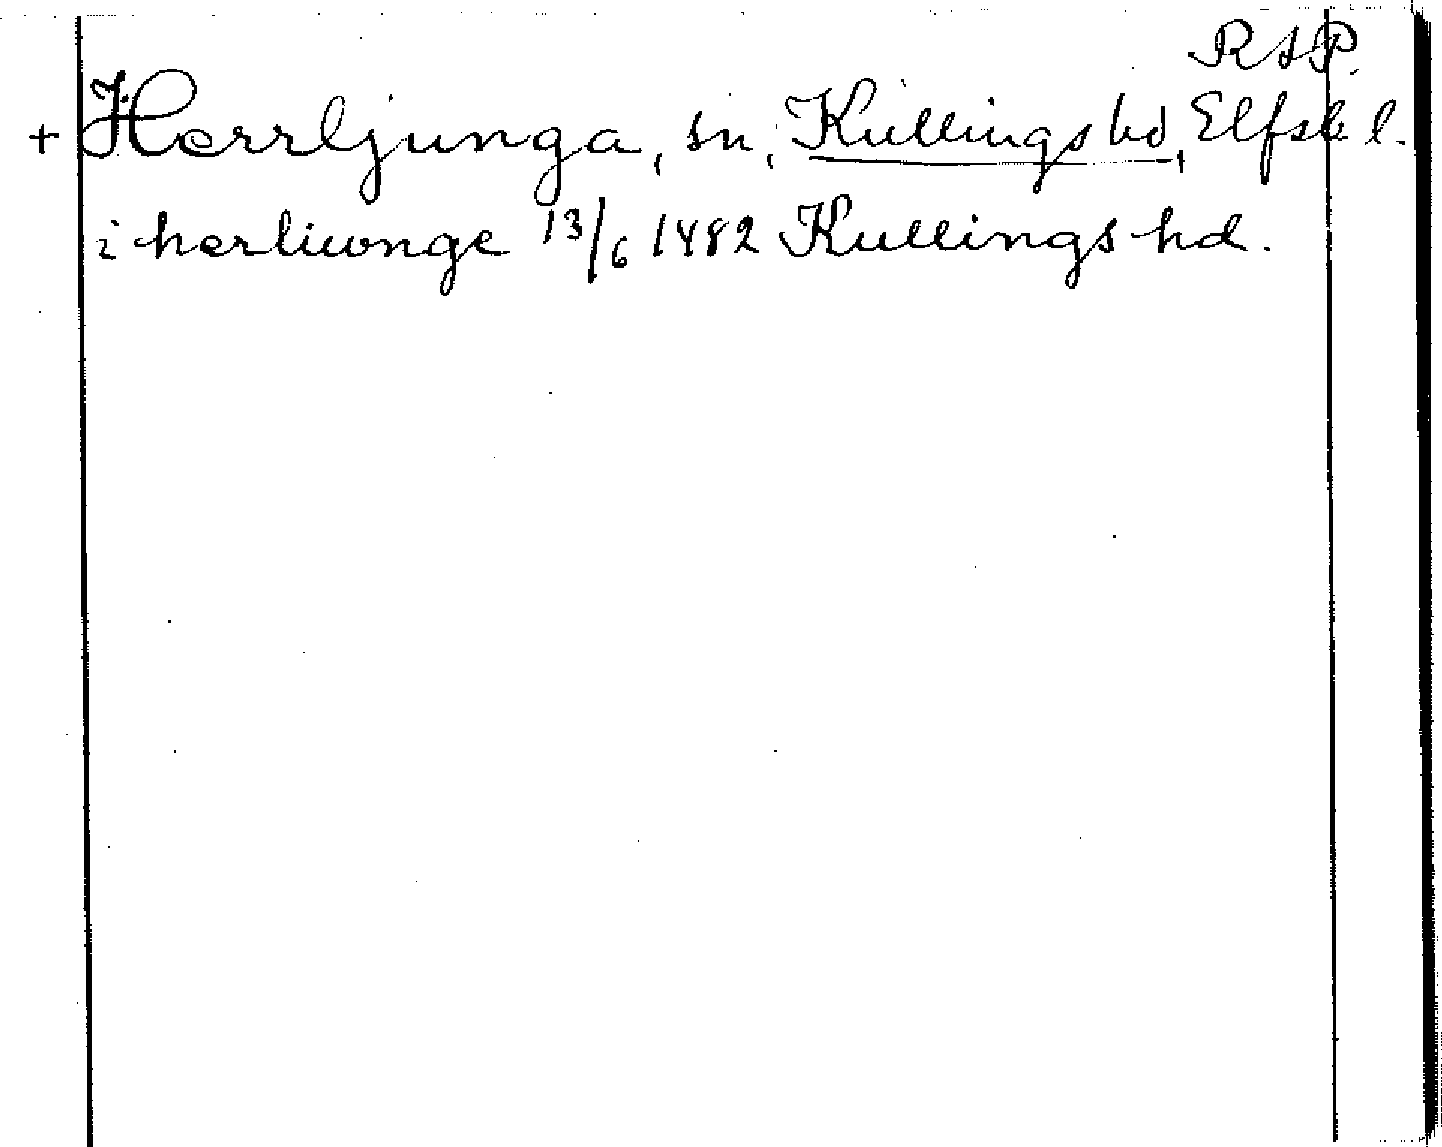 RAP.
+ Herrljunga, sn, Kullings hd, Elfsb l.
i herliwnge 13/6 1482 Kullings hd.